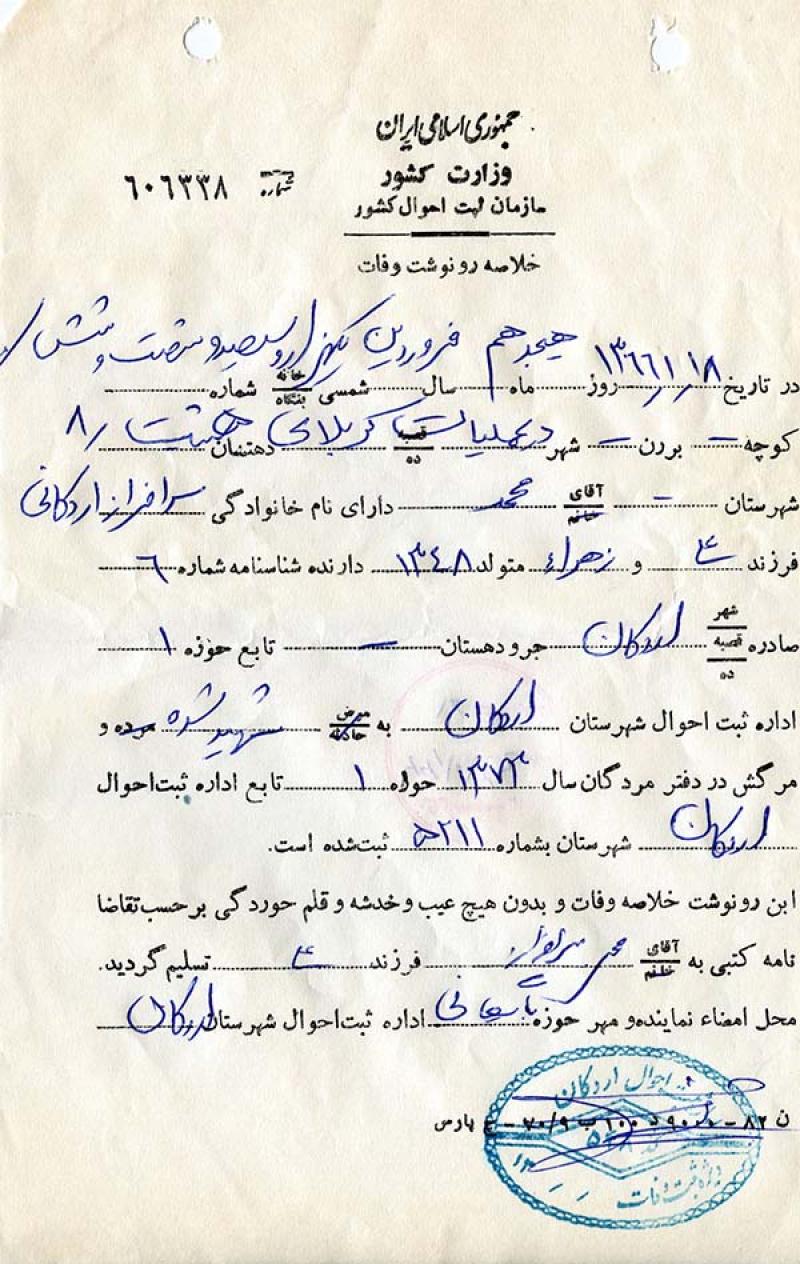 جمهوری اسلامی ایران
وزارت کشور
شماره ٦٠٦٣٣٨
سازمان ثبت احوال کشور
خلاصه رونوشت وفات
هیجدهم فروردین یکهزار و سیصد و شصت و شش
در تاریخ ١٣٦٦/١/١٨ روز ماه سال شمسی خانه بنگاه شماره
کوچه – برزن – شهر در عملیات قصبه ده کربلای دهستان هشت / ٨
شهرستان – آقای خانم محمد دارای نام خانوادگی سرافراز اردکانی
فرزند و زهراء متولد ١٣٤٨ دارنده شناسنامه شماره ٦
صادره شهر قصبه ده اردکان جزو دهستان – تابع حوزه ١
اداره ثبت احوال شهرستان اردکان به مرض حادثه شهید شده مرده و
مرگش در دفتر مردگان سال ١٣٧٣ حوزه ١ تابع اداره ثبت احوال
اردکان شهرستان بشماره ٥٢١١ ثبت شده است.
این رونوشت خلاصه وفات و بدون هیچ عیب و خدشه و قلم خوردگی بر حسب تقاضا
نامه کتبی به آقای خانم سرافراز فرزند تسلیم گردید.
محل امضاء نماینده و مهر حوزه اداره ثبت احوال شهرستان اردکان
احوال اردکان
ن ٨٢ – ٩٠٠٠ د ١٠٠ ب ٧٠/٩ – ع پارس
ثبت وفات